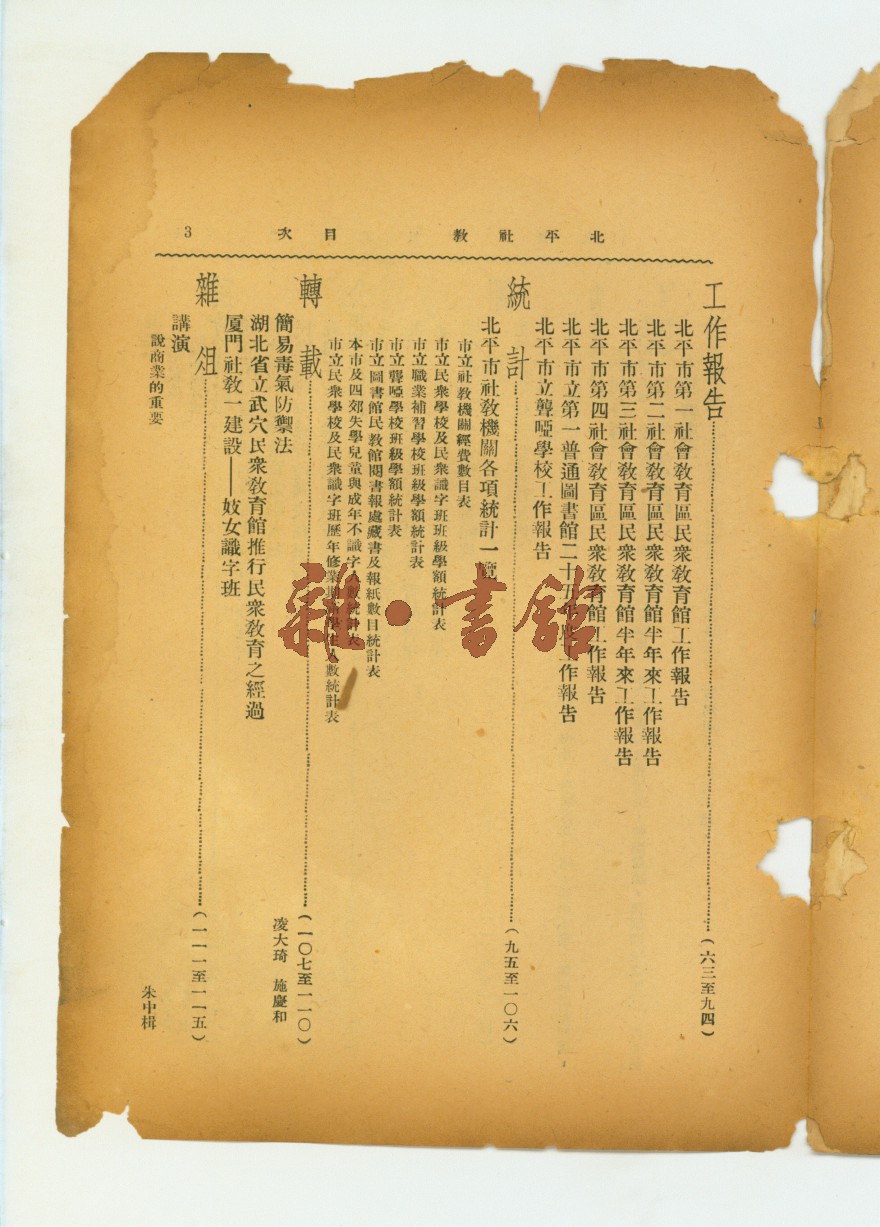 北平社教 目次 3
工作報告……(六三至九四)
北平市第一社會教育區民衆教育館工作報告
北平市第二社會教育區民衆教育館半年來工作報告
北平市第三社會教育區民衆教育館半年來工作報告
北平市第四社會教育區民衆教育館工作報告
北平市立第一普通圖書館二十五年度工作報告
北平市立聾啞學校工作報告
統計……(九五至一〇六)
北平市社教機關各項統計一覽
市立社教機關經費數目表
市立民衆學校及民衆識字班班級學額統計表
市立職業補習學校班級學額統計表
市立聾啞學校班級學額統計表
市立圖書館民教館閱書報處藏書及報紙數目統計表
本市及四郊失學兒童與成年不識字人數統計表
市立民衆學校及民衆識字班歷年修業期滿學生人數統計表
轉載……(一〇七至一一〇)
簡易毒氣防禦法 凌大琦 施慶和
湖北省立武穴民衆教育館推行民衆教育之經過
厦門社教一建設——妓女識字班
雜俎……(一一一至一一五)
講演
說商業的重要 朱中楫
雜·書館